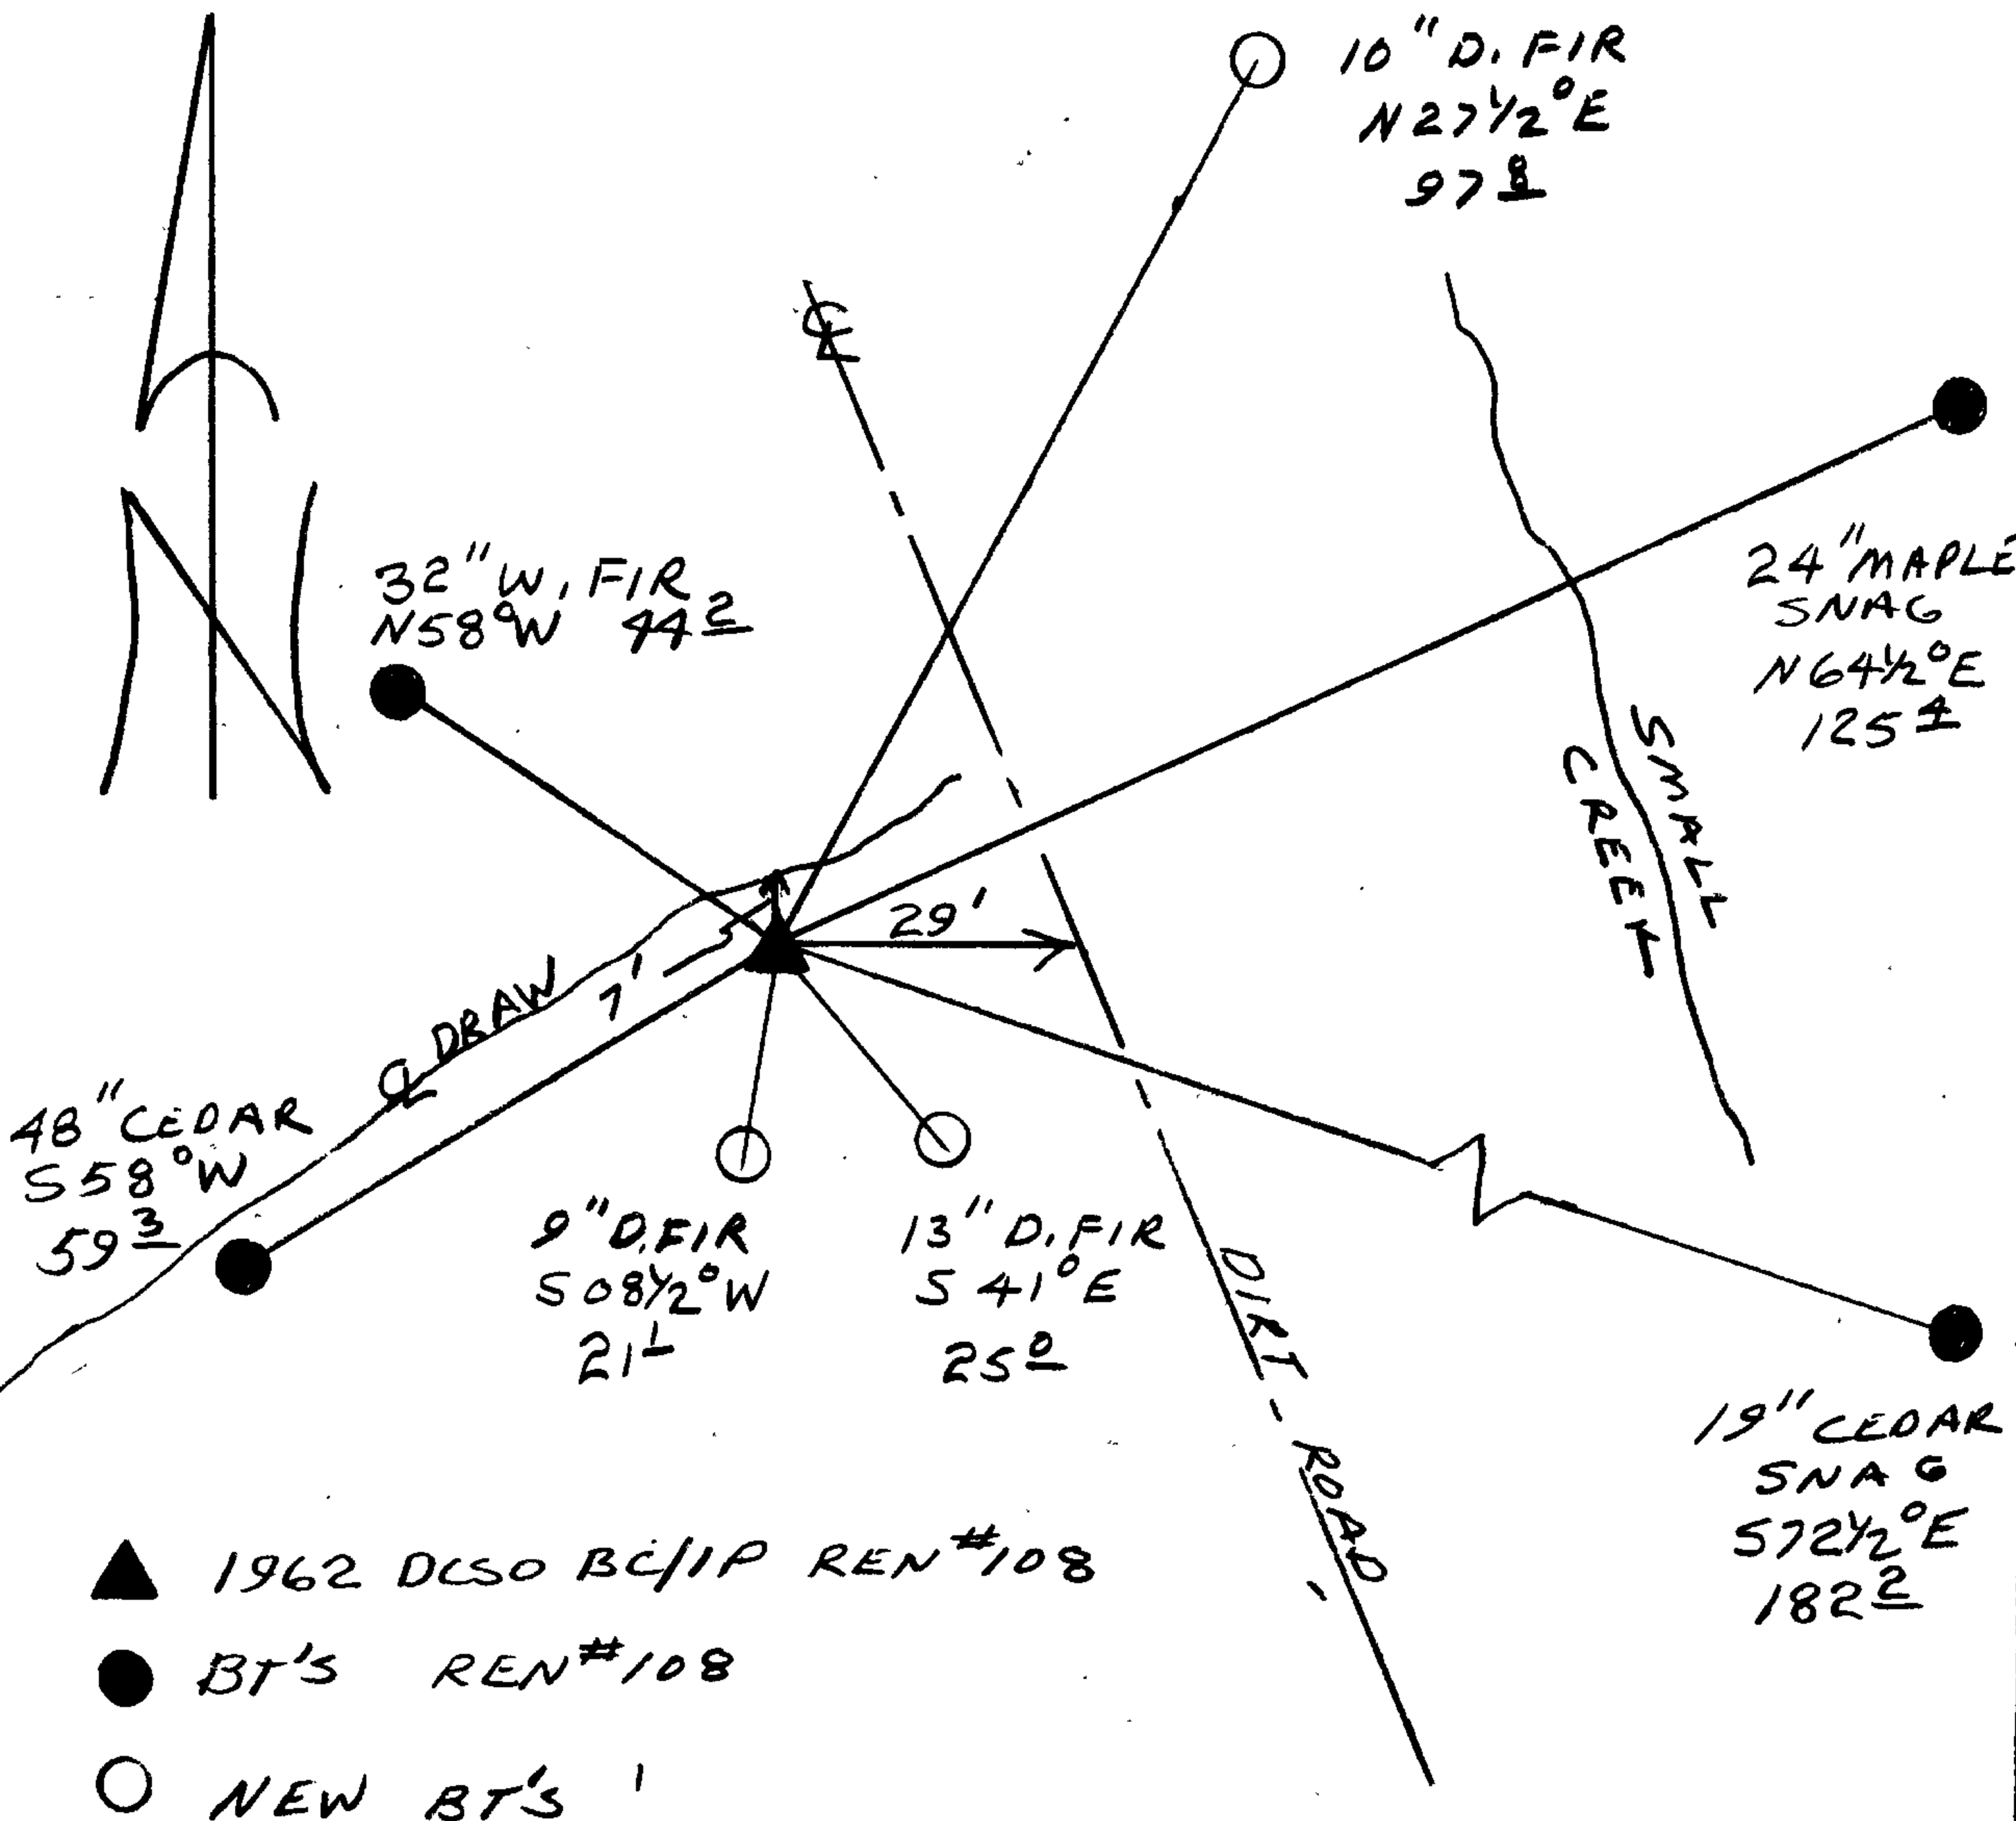 10" D. FIR
N27½°E
97 8
℄
32" W. FIR
N58°W 44 2
24" MAPLE
SNAG
N64½°E
125 4
SMALL
CREEK
N
29'
7'
℄ DRAW
48" CEDAR
S58°W
59 3
9" D. FIR
S08½°W
21 1
13" D. FIR
S 41°E
25 0
DIRT ROAD
19" CEDAR
SNAG
S72½°E
182 2
1962 DCSO BC/IP REN #108
BT'S REN #108
NEW BT'S